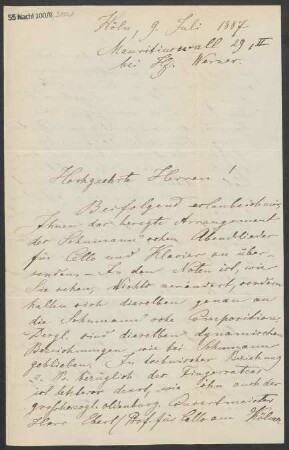 55 Nachl 100/B,
Köln, 9 Juli 1887
Mauritiuswall 29, II
bei Hr. Werner.
Hochgeehrte Herren!
Beifolgend erlaube ich mir,
Ihnen das besagte Arrangement
der Schumann'schen Abendlieder
für Cello und Klavier zu über-
senden. – An den Noten ist, wie
Sie sehen, Nichts verändert, sondern
halten sich dieselben genau an
die Schumann'sche Composition,
Desgl. sind dieselben dynamischen
Bezeichnungen wie bei Schumann
geblieben. In technischer Beziehung
z. B. bezüglich des Fingersatzes
ist letzterer derart, wie ihn auch der
grossherzogl. oldenburg. Concertmeister
Herr Ebert (Prof. für Cello am Kölner